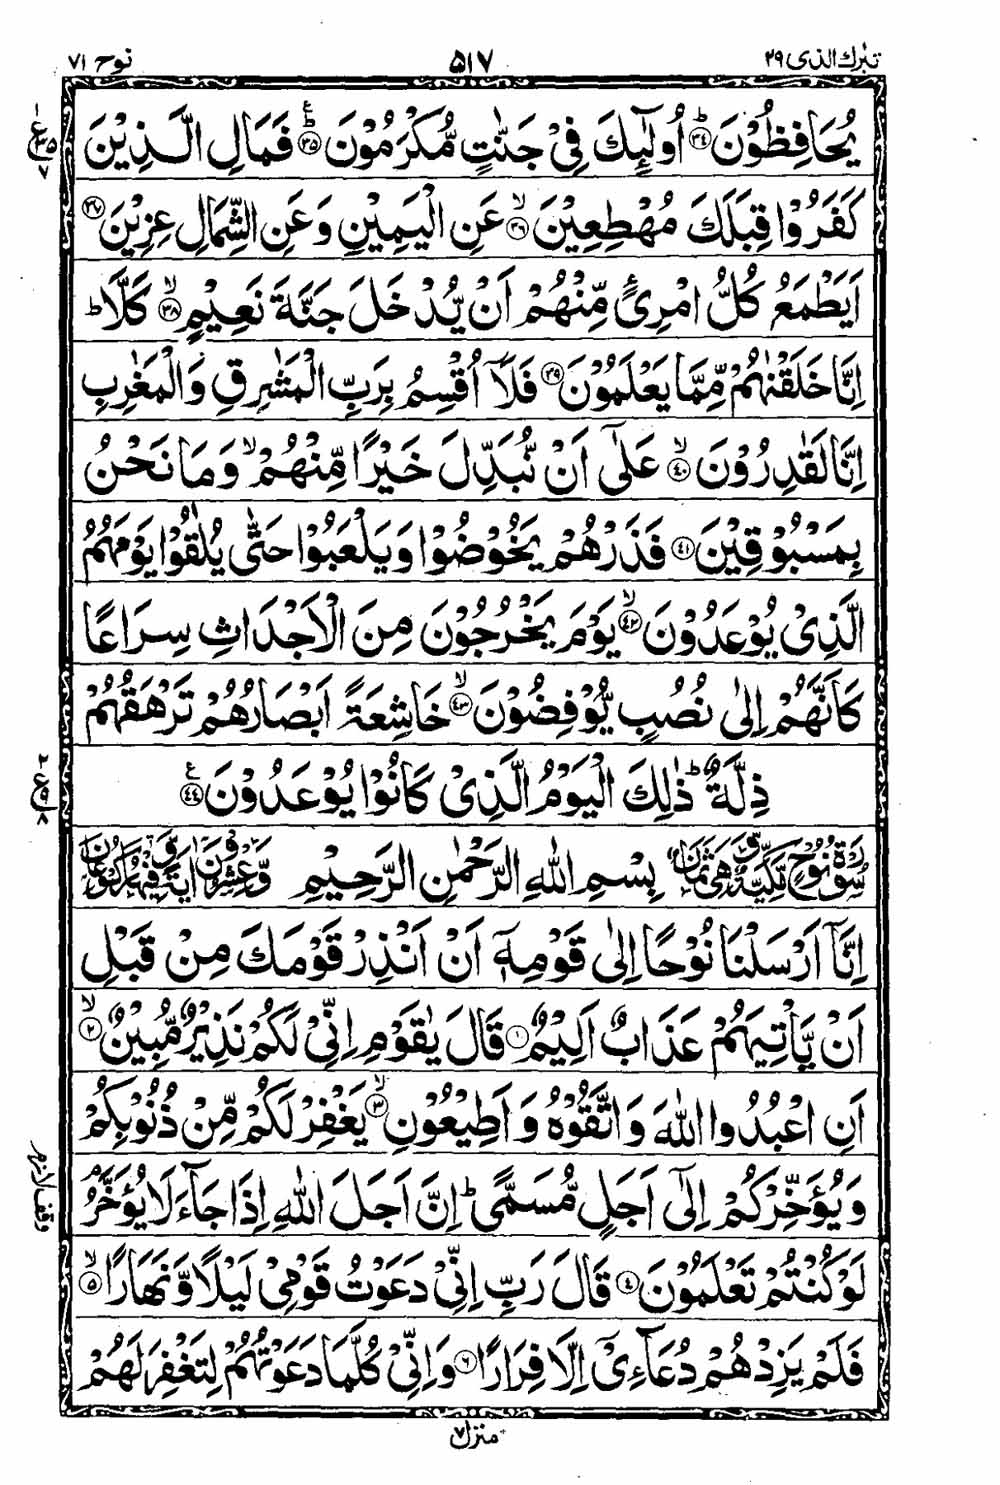 تبٰرك الذی ٢٩ ٥١٧ نوح ٧١
يُحَافِظُوْنَ ؕ﴿٣٤﴾ اُولٰٓئِكَ فِیْ جَنّٰتٍ مُّكْرَمُوْنَ ؕ﴿٣٥﴾ فَمَالِ الَّذِيْنَ
كَفَرُوْا قِبَلَكَ مُهْطِعِيْنَ ۙ﴿٣٦﴾ عَنِ الْيَمِيْنِ وَعَنِ الشِّمَالِ عِزِيْنَ ﴿٣٧﴾
اَيَطْمَعُ كُلُّ امْرِیٴٍ مِّنْهُمْ اَنْ يُّدْخَلَ جَنَّةَ نَعِيْمٍ ۙ﴿٣٨﴾ كَلَّا ؕ
اِنَّا خَلَقْنٰهُمْ مِّمَّا يَعْلَمُوْنَ ﴿٣٩﴾ فَلَاۤ اُقْسِمُ بِرَبِّ الْمَشٰرِقِ وَالْمَغٰرِبِ
اِنَّا لَقٰدِرُوْنَ ۙ﴿٤٠﴾ عَلٰۤی اَنْ نُّبَدِّلَ خَيْرًا مِّنْهُمْ ۙ وَمَا نَحْنُ
بِمَسْبُوْقِيْنَ ﴿٤١﴾ فَذَرْهُمْ يَخُوْضُوْا وَيَلْعَبُوْا حَتّٰی يُلٰقُوْا يَوْمَهُمُ
الَّذِیْ يُوْعَدُوْنَ ۙ﴿٤٢﴾ يَوْمَ يَخْرُجُوْنَ مِنَ الْاَجْدَاثِ سِرَاعًا
كَاَنَّهُمْ اِلٰی نُصُبٍ يُّوْفِضُوْنَ ۙ﴿٤٣﴾ خَاشِعَةً اَبْصَارُهُمْ تَرْهَقُهُمْ
ذِلَّةٌ ؕ ذٰلِكَ الْيَوْمُ الَّذِیْ كَانُوْا يُوْعَدُوْنَ ﴿٤٤﴾
سُوْرَةُ نُوْحٍ مَّكِّيَّةٌ وَّهِیَ ثَمَانٍ بِسْمِ اللّٰهِ الرَّحْمٰنِ الرَّحِيْمِ وَّعِشْرُوْنَ اٰيَةً وَّفِيْهَا رُكُوْعَانِ
اِنَّاۤ اَرْسَلْنَا نُوْحًا اِلٰی قَوْمِهٖۤ اَنْ اَنْذِرْ قَوْمَكَ مِنْ قَبْلِ
اَنْ يَّاْتِيَهُمْ عَذَابٌ اَلِيْمٌ ﴿١﴾ قَالَ يٰقَوْمِ اِنِّیْ لَكُمْ نَذِيْرٌ مُّبِيْنٌ ۙ﴿٢﴾
اَنِ اعْبُدُوا اللّٰهَ وَاتَّقُوْهُ وَاَطِيْعُوْنِ ۙ﴿٣﴾ يَغْفِرْ لَكُمْ مِّنْ ذُنُوْبِكُمْ
وَيُؤَخِّرْكُمْ اِلٰۤی اَجَلٍ مُّسَمًّی ؕ اِنَّ اَجَلَ اللّٰهِ اِذَا جَآءَ لَا يُؤَخَّرُ ۘ
لَوْ كُنْتُمْ تَعْلَمُوْنَ ﴿٤﴾ قَالَ رَبِّ اِنِّیْ دَعَوْتُ قَوْمِیْ لَيْلًا وَّنَهَارًا ۙ﴿٥﴾
فَلَمْ يَزِدْهُمْ دُعَآءِیْۤ اِلَّا فِرَارًا ﴿٦﴾ وَاِنِّیْ كُلَّمَا دَعَوْتُهُمْ لِتَغْفِرَ لَهُمْ
منزل ٧
ع ١ ٣٥ ٧
ع ٢ ٩ ٨
وقف لازم